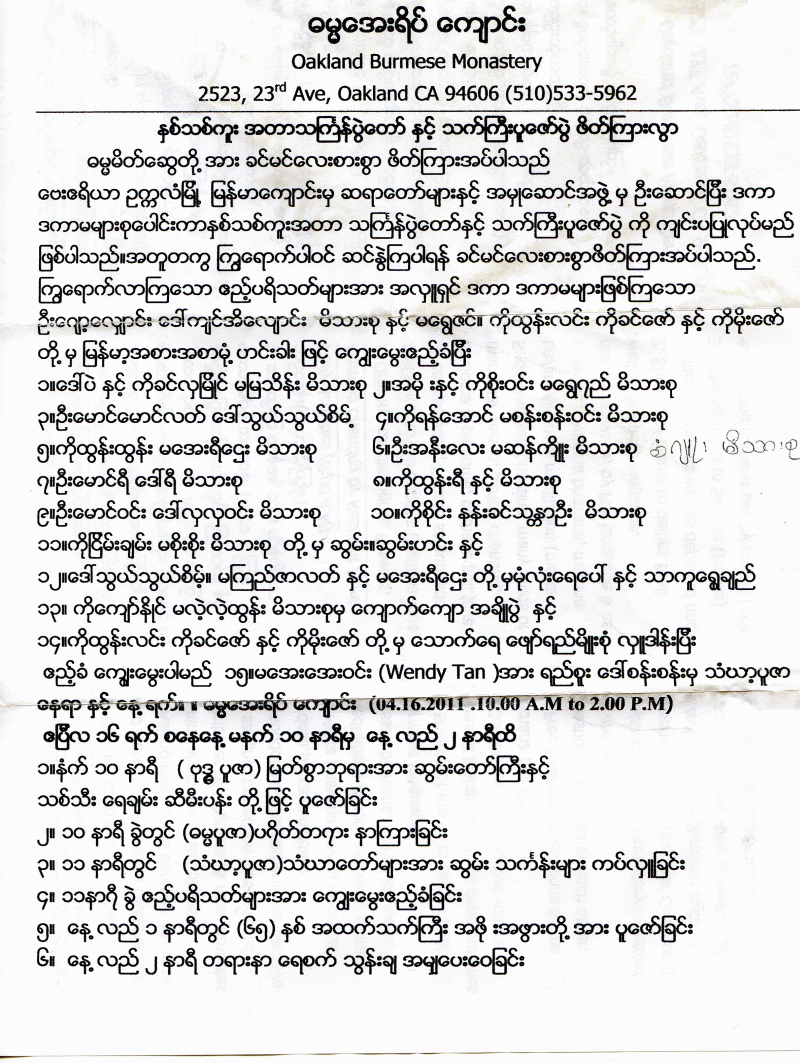 ဓမ္မအေးရိပ် ကျောင်း
Oakland Burmese Monastery
2523, 23rd Ave, Oakland CA 94606 (510)533-5962
နှစ်သစ်ကူး အတာသင်္ကြန်ပွဲတော် နှင့် သက်ကြီးပူဇော်ပွဲ ဖိတ်ကြားလွှာ
ဓမ္မမိတ်ဆွေတို့ အား ခင်မင်လေးစားစွာ ဖိတ်ကြားအပ်ပါသည်
ဗေးဧရိယာ ဥက္ကလံမြို့ မြန်မာကျောင်းမှ ဆရာတော်များနှင့် အမှုဆောင်အဖွဲ့ မှ ဦးဆောင်ပြီး ဒကာ
ဒကာမများစုပေါင်းကာနှစ်သစ်ကူးအတာ သင်္ကြန်ပွဲတော်နှင့် သက်ကြီးပူဇော်ပွဲ ကို ကျင်းပပြုလုပ်မည်
ဖြစ်ပါသည်။အတူတကွ ကြွရောက်ပါဝင် ဆင်နွှဲကြပါရန် ခင်မင်လေးစားစွာဖိတ်ကြားအပ်ပါသည်.
ကြွရောက်လာကြသော ဧည့်ပရိသတ်များအား အလှူရှင် ဒကာ ဒကာမများဖြစ်ကြသော
ဦးဂျော့လျှောင်း ဒေါ်ကျင်အိလျောင်း မိသားစု နှင့် မရွှေဇင်။ ကိုထွန်းလင်း ကိုခင်ဇော် နှင့် ကိုမိုးဇော်
တို့ မှ မြန်မာ့အစားအစာမုံ့ ဟင်းခါး ဖြင့် ကျွေးမွေးဧည့်ခံပြီး
၁။ဒေါ်ပဲ နှင့် ကိုခင်လှမြိုင် မမြသိန်း မိသားစု ၂။အမို းနှင့် ကိုစိုးဝင်း မရွှေဂုည် မိသားစု
၃။ဦးမောင်မောင်လတ် ဒေါ်သွယ်သွယ်စိမ့် ၄။ကိုရန်အောင် မစန်းစန်းဝင်း မိသားစု
၅။ကိုထွန်းထွန်း မအေးရီဌေး မိသားစု ၆။ဦးအနီးလေး မဆန်ကျိုး မိသားစု မိသားစု
၇။ဦးမောင်ရီ ဒေါ်ရီ မိသားစု ၈။ကိုထွန်းရီ နှင့် မိသားစု
၉။ဦးမောင်ဝင်း ဒေါ်လှလှဝင်း မိသားစု ၁၀။ကိုစိုင်း နန်းခင်သန္တာဦး မိသားစု
၁၁။ကိုငြိမ်းချမ်း မစိုးစိုး မိသားစု တို့ မှ ဆွမ်း။ဆွမ်းဟင်း နှင့်
၁၂။ဒေါ်သွယ်သွယ်စိမ့်။ မကြည်ဇာလတ် နှင့် မအေးရီဌေး တို့ မှမုံလုံးရေပေါ် နှင့် သာကူရွှေချည်
၁၃။ ကိုကျော်နိုင် မလဲ့လဲ့ထွန်း မိသားစုမှ ကျောက်ကျော အချိုပွဲ နှင့်
၁၄။ကိုထွန်းလင်း ကိုခင်ဇော် နှင့် ကိုမိုးဇော် တို့ မှ သောက်ရေ ဖျော်ရည်မျိုးစုံ လှူဒါန်းပြီး
ဧည့်ခံ ကျွေးမွေးပါမည် ၁၅။မအေးအေးဝင်း (Wendy Tan )အား ရည်စူး ဒေါ်စန်းစန်းမှ သံဃာ့ပူဇာ
နေရာ နှင့် နေ့ ရက်။ ။ ဓမ္မအေးရိပ် ကျောင်း (04.16.2011 .10.00 A.M to 2.00 P.M)
ဧပြီလ ၁၆ ရက် စနေနေ့ မနက် ၁၀ နာရီမှ နေ့ လည် ၂ နာရီထိ
၁။နံက် ၁၀ နာရီ ( ဗုဒ္ဓ ပူဇာ) မြတ်စွာဘုရားအား ဆွမ်းတော်ကြီးနှင့်
သစ်သီး ရေချမ်း ဆီမီးပန်း တို့ ဖြင့် ပူဇော်ခြင်း
၂။ ၁၀ နာရီ ခွဲတွင် (ဓမ္မပူဇာ)ပဂိုတ်တရား နာကြားခြင်း
၃။ ၁၁ နာရီတွင် (သံဃာ့ပူဇာ)သံဃာတော်များအား ဆွမ်း သင်္ကန်းများ ကပ်လှူခြင်း
၄။ ၁၁နာဂီ ခွဲ ဧည့်ပရိသတ်များအား ကျွေးမွေးဧည့်ခံခြင်း
၅။ နေ့ လည် ၁ နာရီတွင် (၆၅) နှစ် အထက်သက်ကြီး အဖို းအဖွားတို့ အား ပူဇော်ခြင်း
၆။ နေ့ လည် ၂ နာရီ တရားနာ ရေစက် သွန်းချ အမျှပေးဝေခြင်း